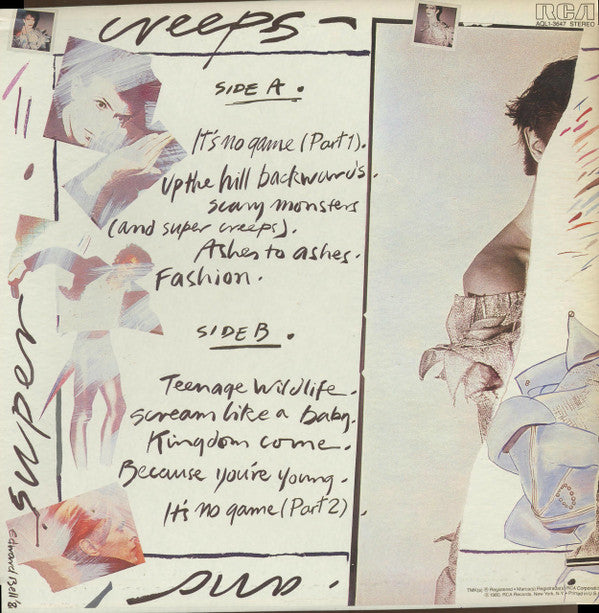 creeps -
RCA
AQL1-3647 STEREO
SIDE A.
It's no game (Part 1).
Up the hill backwards.
Scary monsters
(and super creeps).
Ashes to ashes.
Fashion.
SIDE B.
Teenage Wildlife.
Scream like a baby.
Kingdom come.
Because you're young.
It's no game (Part 2).
super
and
Edward Bell
TMK(s) ® Registered • Marca(s) Registrada(s) RCA Corporation
© 1980, RCA Records, New York, N.Y. • Printed in U.S.